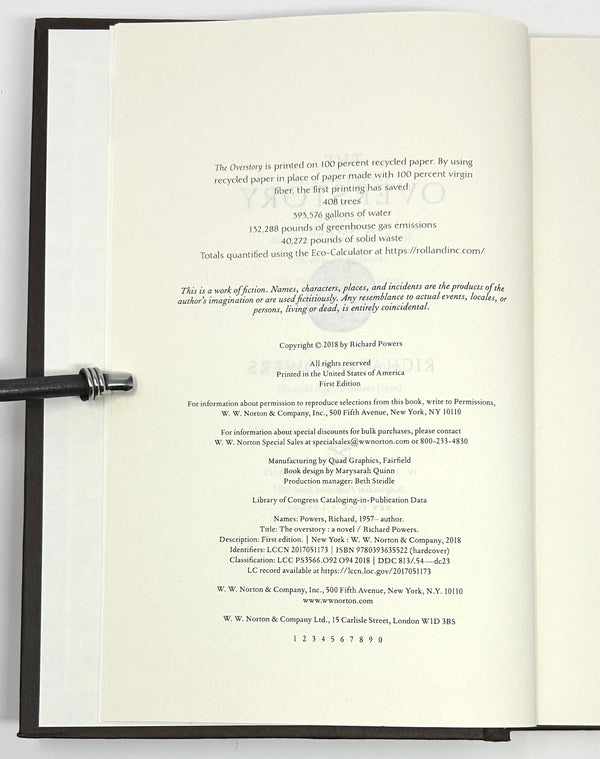 The Overstory is printed on 100 percent recycled paper. By using
recycled paper in place of paper made with 100 percent virgin
fiber, the first printing has saved:
408 trees
393,576 gallons of water
132,288 pounds of greenhouse gas emissions
40,272 pounds of solid waste
Totals quantified using the Eco-Calculator at https://rollandinc.com/.
This is a work of fiction. Names, characters, places, and incidents are the products of the
author's imagination or are used fictitiously. Any resemblance to actual events, locales, or
persons, living or dead, is entirely coincidental.
Copyright © 2018 by Richard Powers
All rights reserved
Printed in the United States of America
First Edition
For information about permission to reproduce selections from this book, write to Permissions,
W. W. Norton & Company, Inc., 500 Fifth Avenue, New York, NY 10110
For information about special discounts for bulk purchases, please contact
W. W. Norton Special Sales at specialsales@wwnorton.com or 800-233-4830
Manufacturing by Quad Graphics, Fairfield
Book design by Marysarah Quinn
Production manager: Beth Steidle
Library of Congress Cataloging-in-Publication Data
Names: Powers, Richard, 1957– author.
Title: The overstory : a novel / Richard Powers.
Description: First edition. | New York : W. W. Norton & Company, 2018
Identifiers: LCCN 2017051173 | ISBN 9780393635522 (hardcover)
Classification: LCC PS3566.O92 O94 2018 | DDC 813/.54—dc23
LC record available at https://lccn.loc.gov/2017051173
W. W. Norton & Company, Inc., 500 Fifth Avenue, New York, N.Y. 10110
www.wwnorton.com
W. W. Norton & Company Ltd., 15 Carlisle Street, London W1D 3BS
1 2 3 4 5 6 7 8 9 0